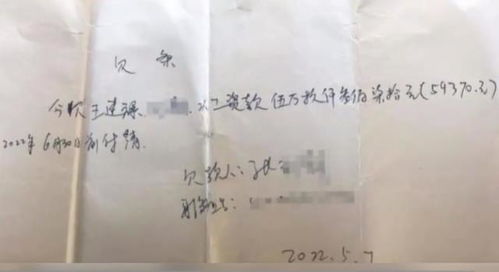 欠条
今欠王连 人工资款伍万玖仟叁佰柒拾元(59370.元)
2022年6月30日前付清.
欠款人:张
2022.5.7